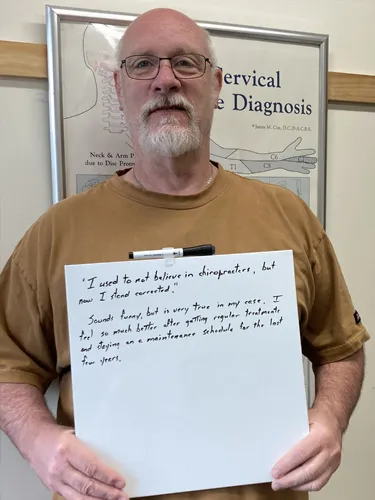 ervical
e Diagnosis
Neck & Arm P
due to Disc Pro
C6
T1
C8
"I used to not believe in chiropracters, but
now I stand corrected."
Sounds funny, but is very true in my case. I
feel so much better after getting regular treatments
and staying on a maintenance schedule for the last
few years.